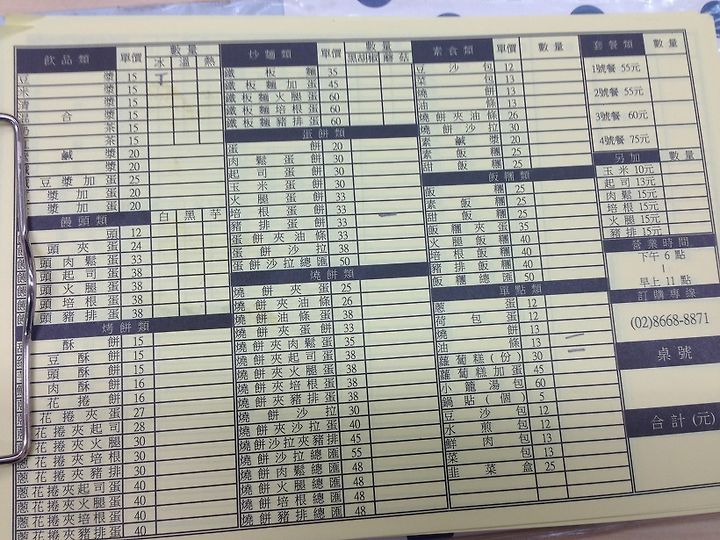 飲品類 單價 數量
冰 溫 熱
豆漿 15
米漿 15
清漿 15
混合漿 15
茶 15
茶 15
鹹漿 20
漿 20
豆漿加蛋 25
漿加蛋 20
漿加蛋 20
饅頭類 白 黑 芋
頭 12
頭夾蛋 24
頭肉鬆蛋 33
頭起司蛋 38
頭火腿蛋 38
頭培根蛋 38
頭豬排蛋 38
烤餅類
酥餅 15
豆酥餅 15
頭酥餅 15
肉酥餅 16
花捲餅 16
花捲夾蛋 27
花捲夾起司 28
花捲夾火腿 30
蔥花捲夾培根 30
蔥花捲夾豬排 30
蔥花捲夾起司蛋 40
蔥花捲夾火腿蛋 40
蔥花捲夾培根蛋 40
蔥花捲夾豬排蛋 40
炒麵類 單價 數量
黑胡椒 蘑菇
鐵板麵 35
鐵板麵加蛋 45
鐵板麵火腿蛋 60
鐵板麵培根蛋 60
鐵板麵豬排蛋 60
蛋餅類
蛋餅 20
肉鬆蛋餅 30
起司蛋餅 30
玉米蛋餅 30
火腿蛋餅 33
培根蛋餅 33
豬排蛋餅 33
蛋餅夾油條 33
蛋餅沙拉 38
蛋餅沙拉總匯 50
燒餅類
燒餅夾蛋 25
燒餅夾油條 26
燒餅夾蔥蛋 38
燒餅夾蛋餅 33
燒餅夾肉鬆蛋 35
燒餅夾起司蛋 38
燒餅夾火腿蛋 38
燒餅夾培根蛋 38
燒餅夾豬排蛋 38
燒餅沙拉 30
燒餅沙拉夾蛋 40
燒餅沙拉夾豬排 45
燒餅沙拉總匯 55
燒餅肉鬆總匯 48
燒餅火腿總匯 48
燒餅培根總匯 48
燒餅豬排總匯 48
素食類 單價 數量
豆沙包 12
菜包 13
燒餅 13
油條 13
燒餅夾油條 26
燒餅沙拉 30
素鹹漿 20
素飯糰 25
甜飯糰 25
飯糰類
飯糰 25
素飯糰 25
甜飯糰 25
飯糰夾蛋 35
火腿飯糰 40
培根飯糰 40
豬排飯糰 40
飯糰總匯 50
單點類
蔥蛋 12
荷包蛋 12
燒餅 13
油條 13
蘿蔔糕(份) 30
蘿蔔糕加蛋 45
小籠湯包 60
鍋貼(個) 5
豆沙包 12
水煎包 12
鮮肉包 13
菜包 13
韭菜盒 25
套餐類 數量
1號餐 55元
2號餐 55元
3號餐 60元
4號餐 75元
另加 數量
玉米 10元
起司 13元
肉鬆 15元
培根 15元
火腿 15元
豬排 15元
營業時間
下午 6 點
|
早上 11 點
訂購專線
(02)8668-8871
桌號
合計(元)